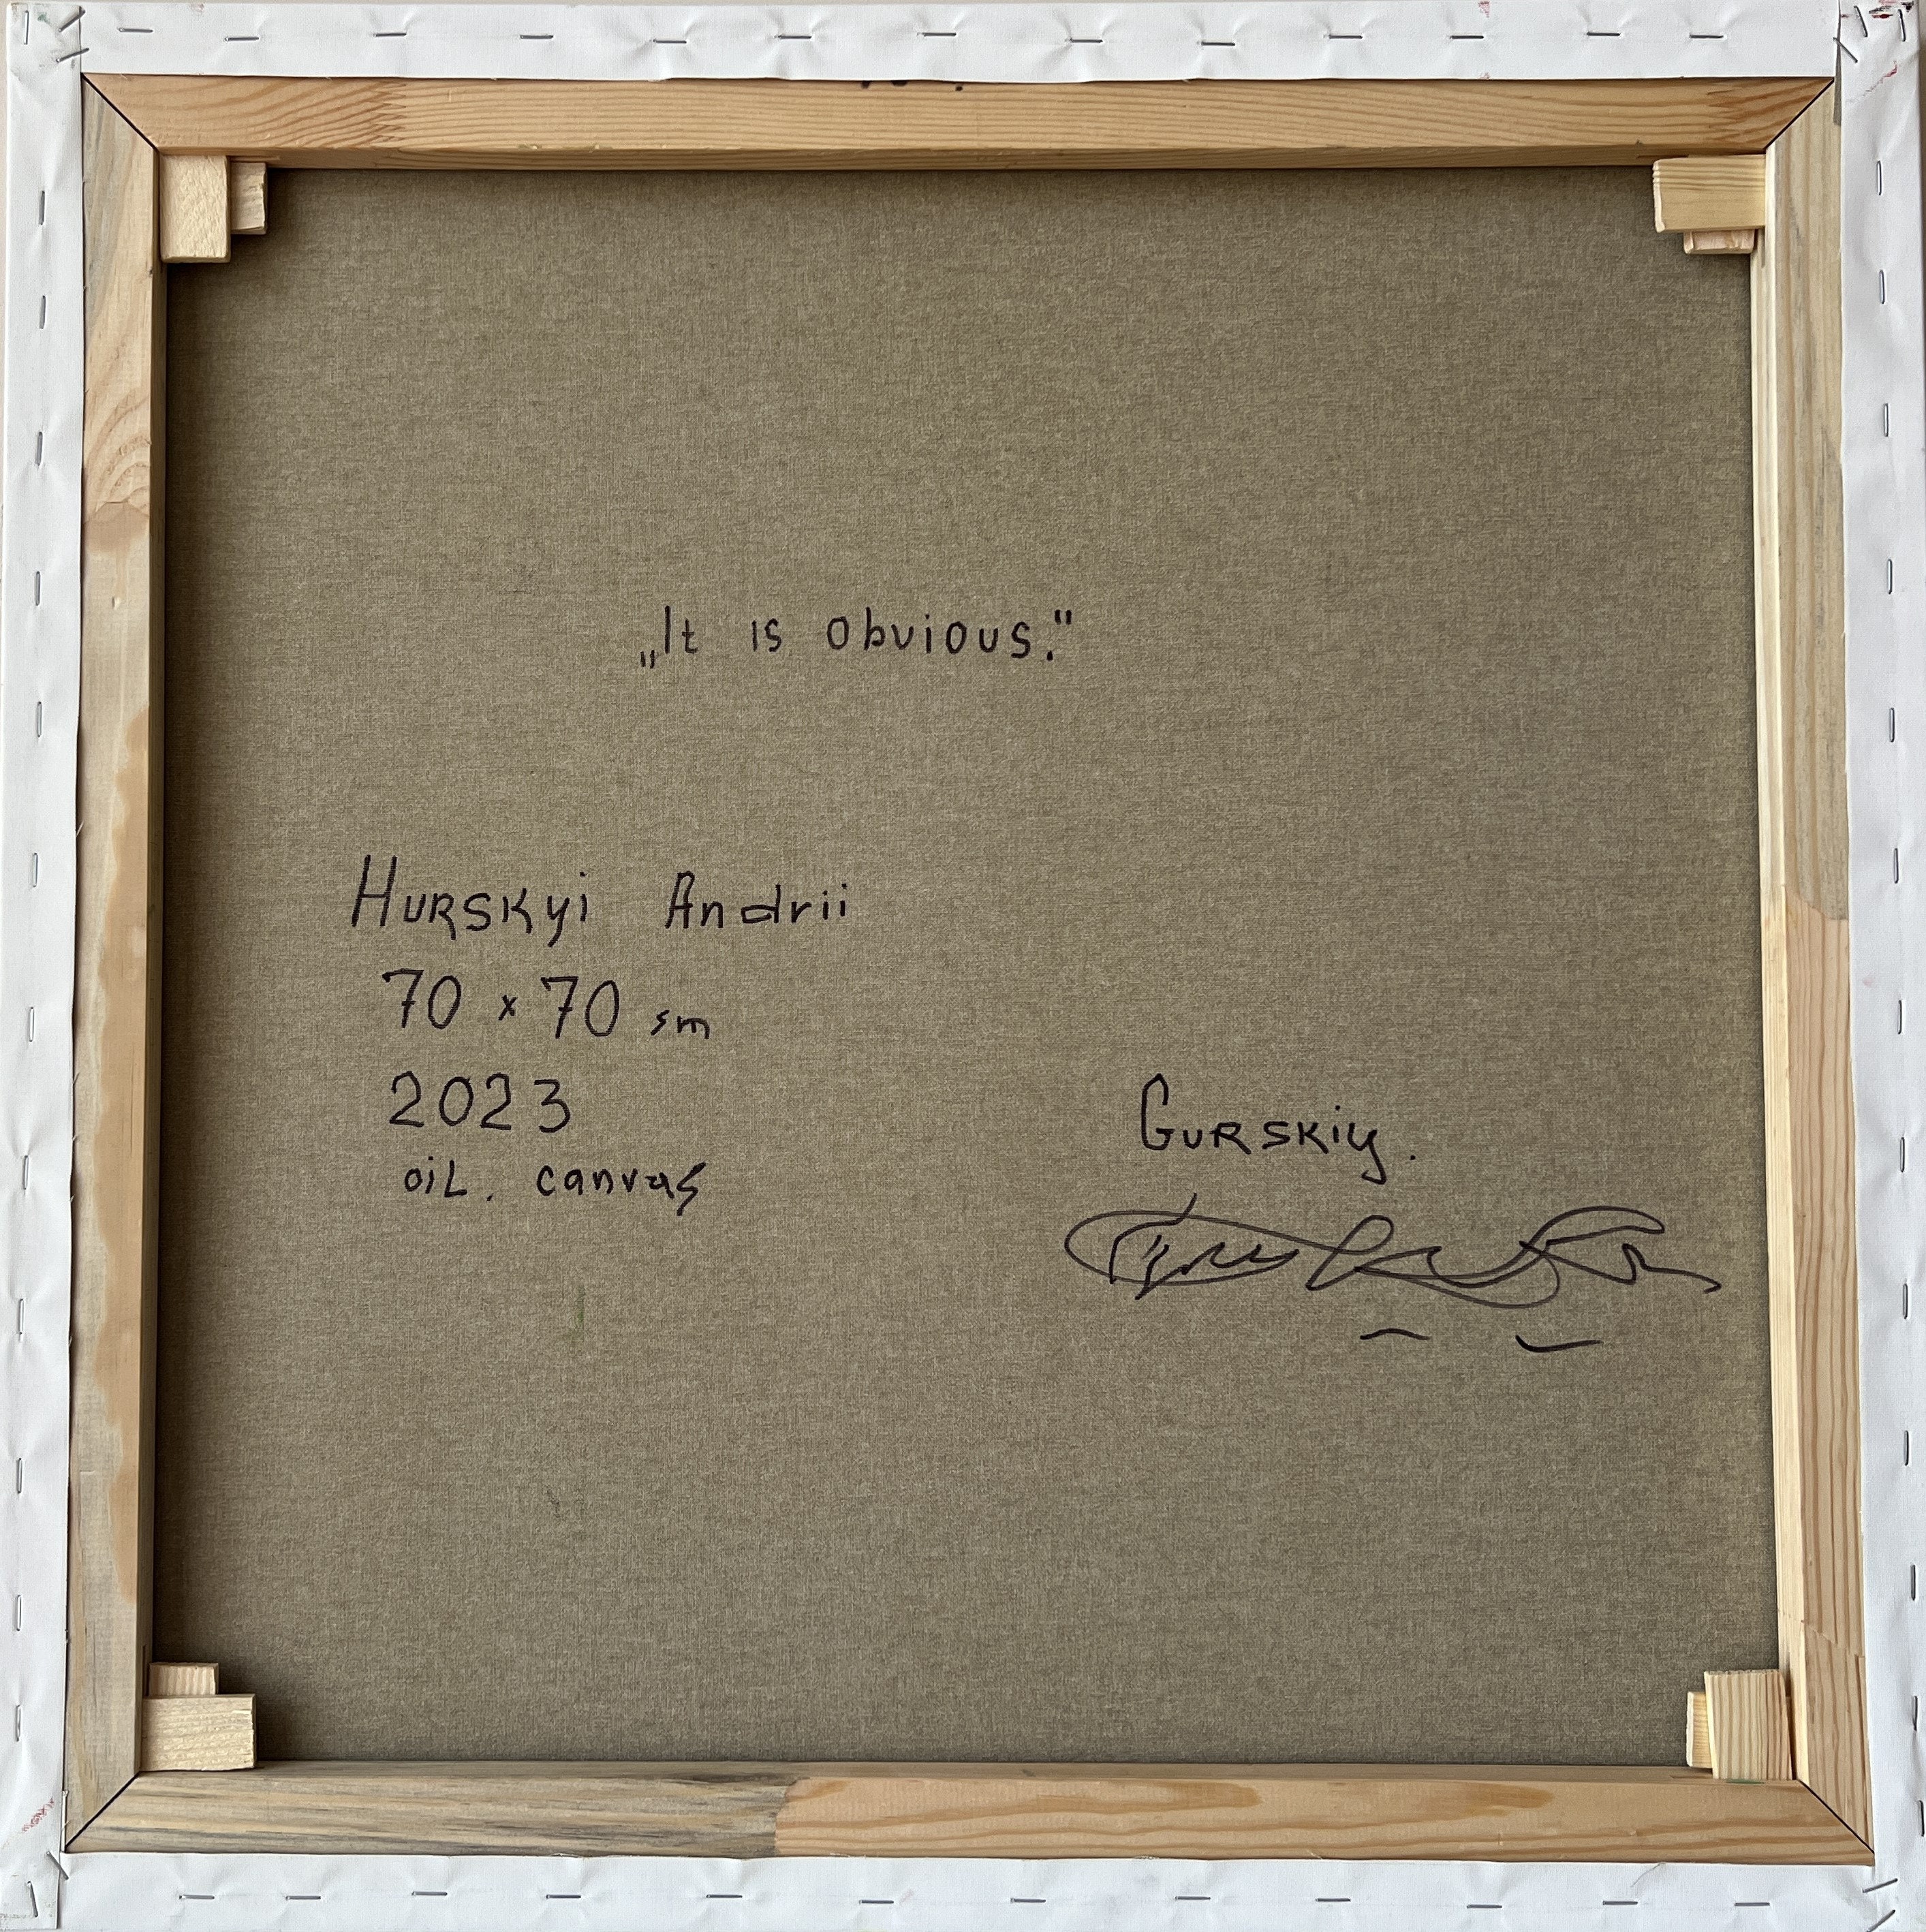 „It is obvious."
Hurskyi Andrii
70 x 70 sm
2023
oil. canvas
Gurskiy.